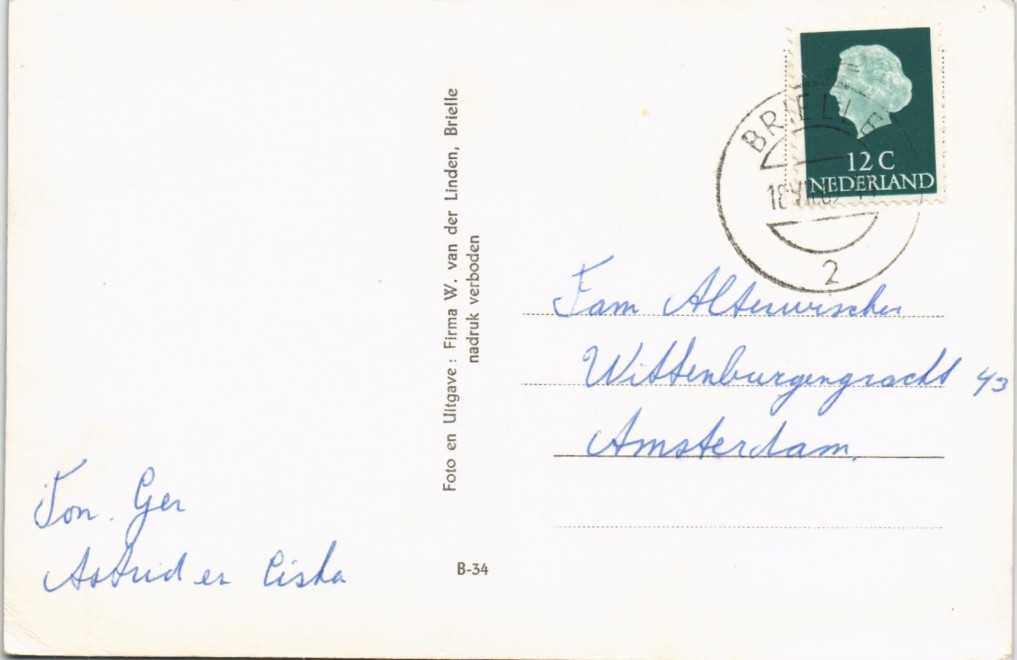 12 C
NEDERLAND
BRIELLE
2
Foto en Uitgave : Firma W. van der Linden, Brielle
nadruk verboden
Fam Alterwischer
Wittenburgengracht 43
Amsterdam.
Ton. Ger
Astrid en Ciska
B-34